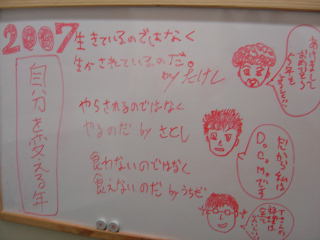 2007
自分を変える年
生きているのではなく
生かされているのだ。
by たけし
やらされるのではなく
やるのだ by さとし
食わないのではなく
食えないのだ by うちだ
あけまして
おめでとう
だから私は
DoCoMoです